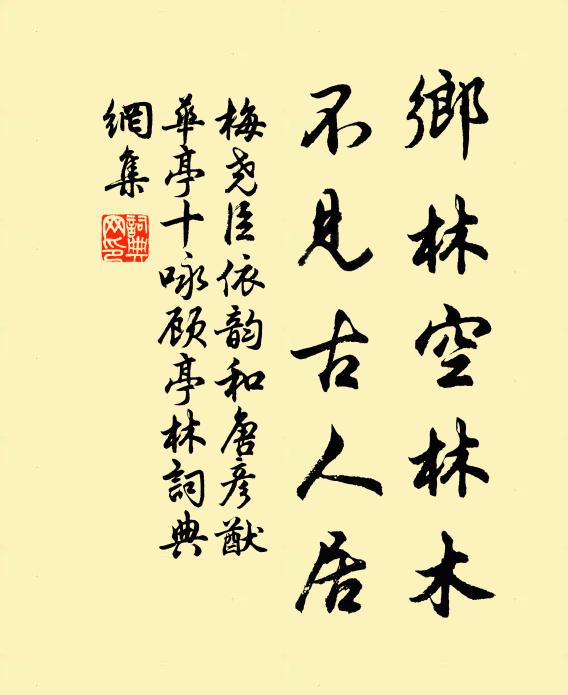 鄉林空林木
不見古人居
梅堯臣依韵和唐彥猷
華亭十咏顾亭林詞典
網集
詞典
网印